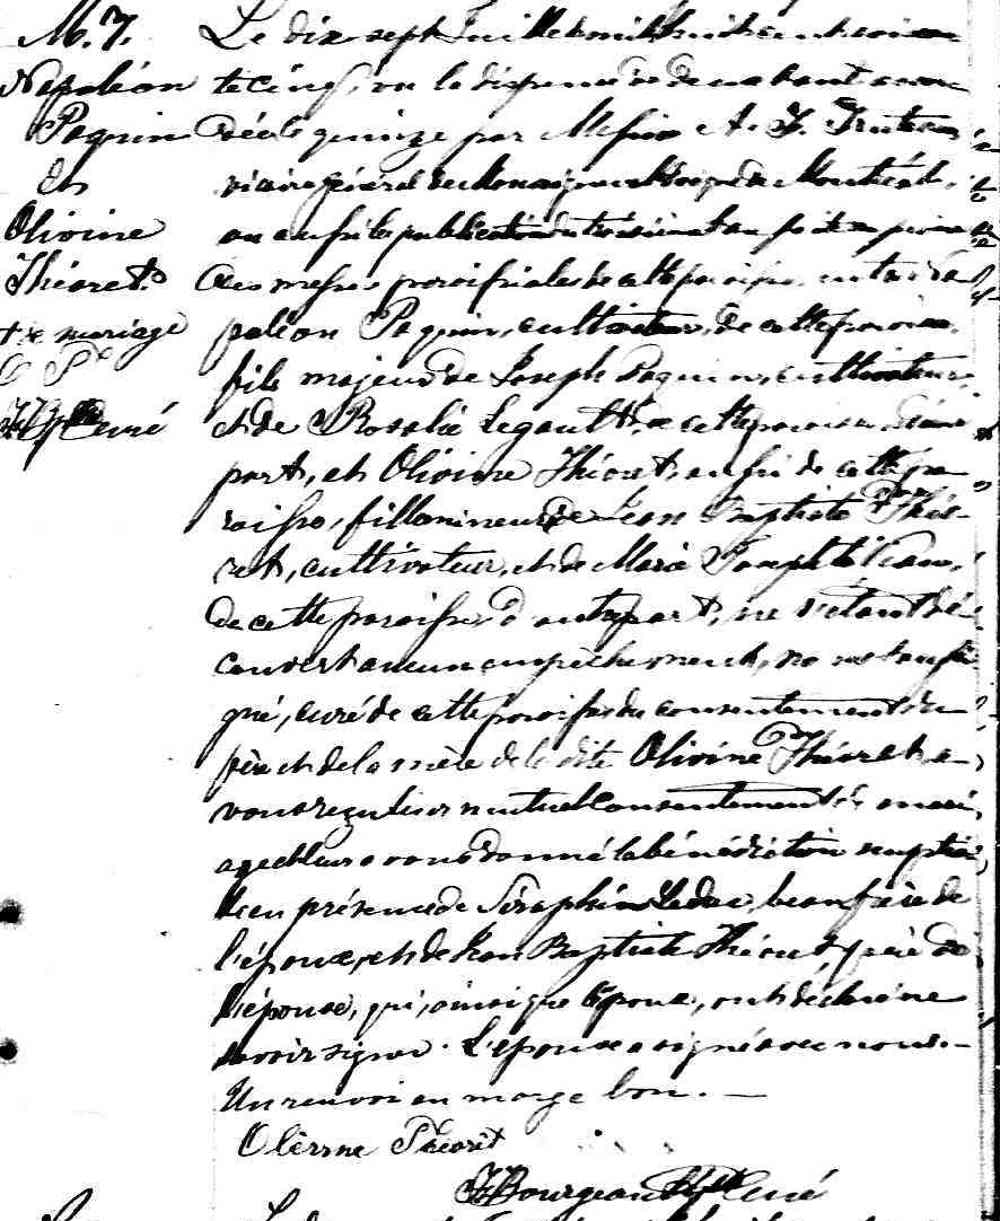 M. 7.
Napoléon
Paquin
et
Olivine
Théoret.
+ de mariage
curé
Le dix sept Juillet mil huit cent soixan
te cinq, vu la dispense de deux bans accor
dée le quinze par Messire A. F. Truteau
vicaire général de Monseigneur l'évêque de Montréal,
vu aussi la publication du troisième ban faite au prône
des messes paroissiales de cette paroisse, entre Na
poléon Paquin, cultivateur, de cette paroisse,
fils majeur de Joseph Paquin, cultivateur,
et de Rosalie Legault, de cette paroisse d'une
part, et Olivine Théoret, aussi de cette pa
roisse, fille mineure de Jean Baptiste Théo-
ret, cultivateur, et de Marie
de cette paroisse d'autre part, ne s'étant dé
couvert aucun empêchement, nous soussi
gné, curé de cette paroisse du consentement du
père et de la mère de la dite Olivine Théoret a-
vons reçu leur mutuel consentement de mari
age et leur avons donné la bénédiction nuptia
le en présence de Séraphin Leduc, beau frère de
l'époux, et de Jean Baptiste Théoret, père de
l'épouse, qui, ainsi que l'époux, ont déclaré ne
savoir signer. L'épouse a signé avec nous.—
Un renvoi en marge bon. —
Olèvine Théorèt
Bourgeault Ptre Curé